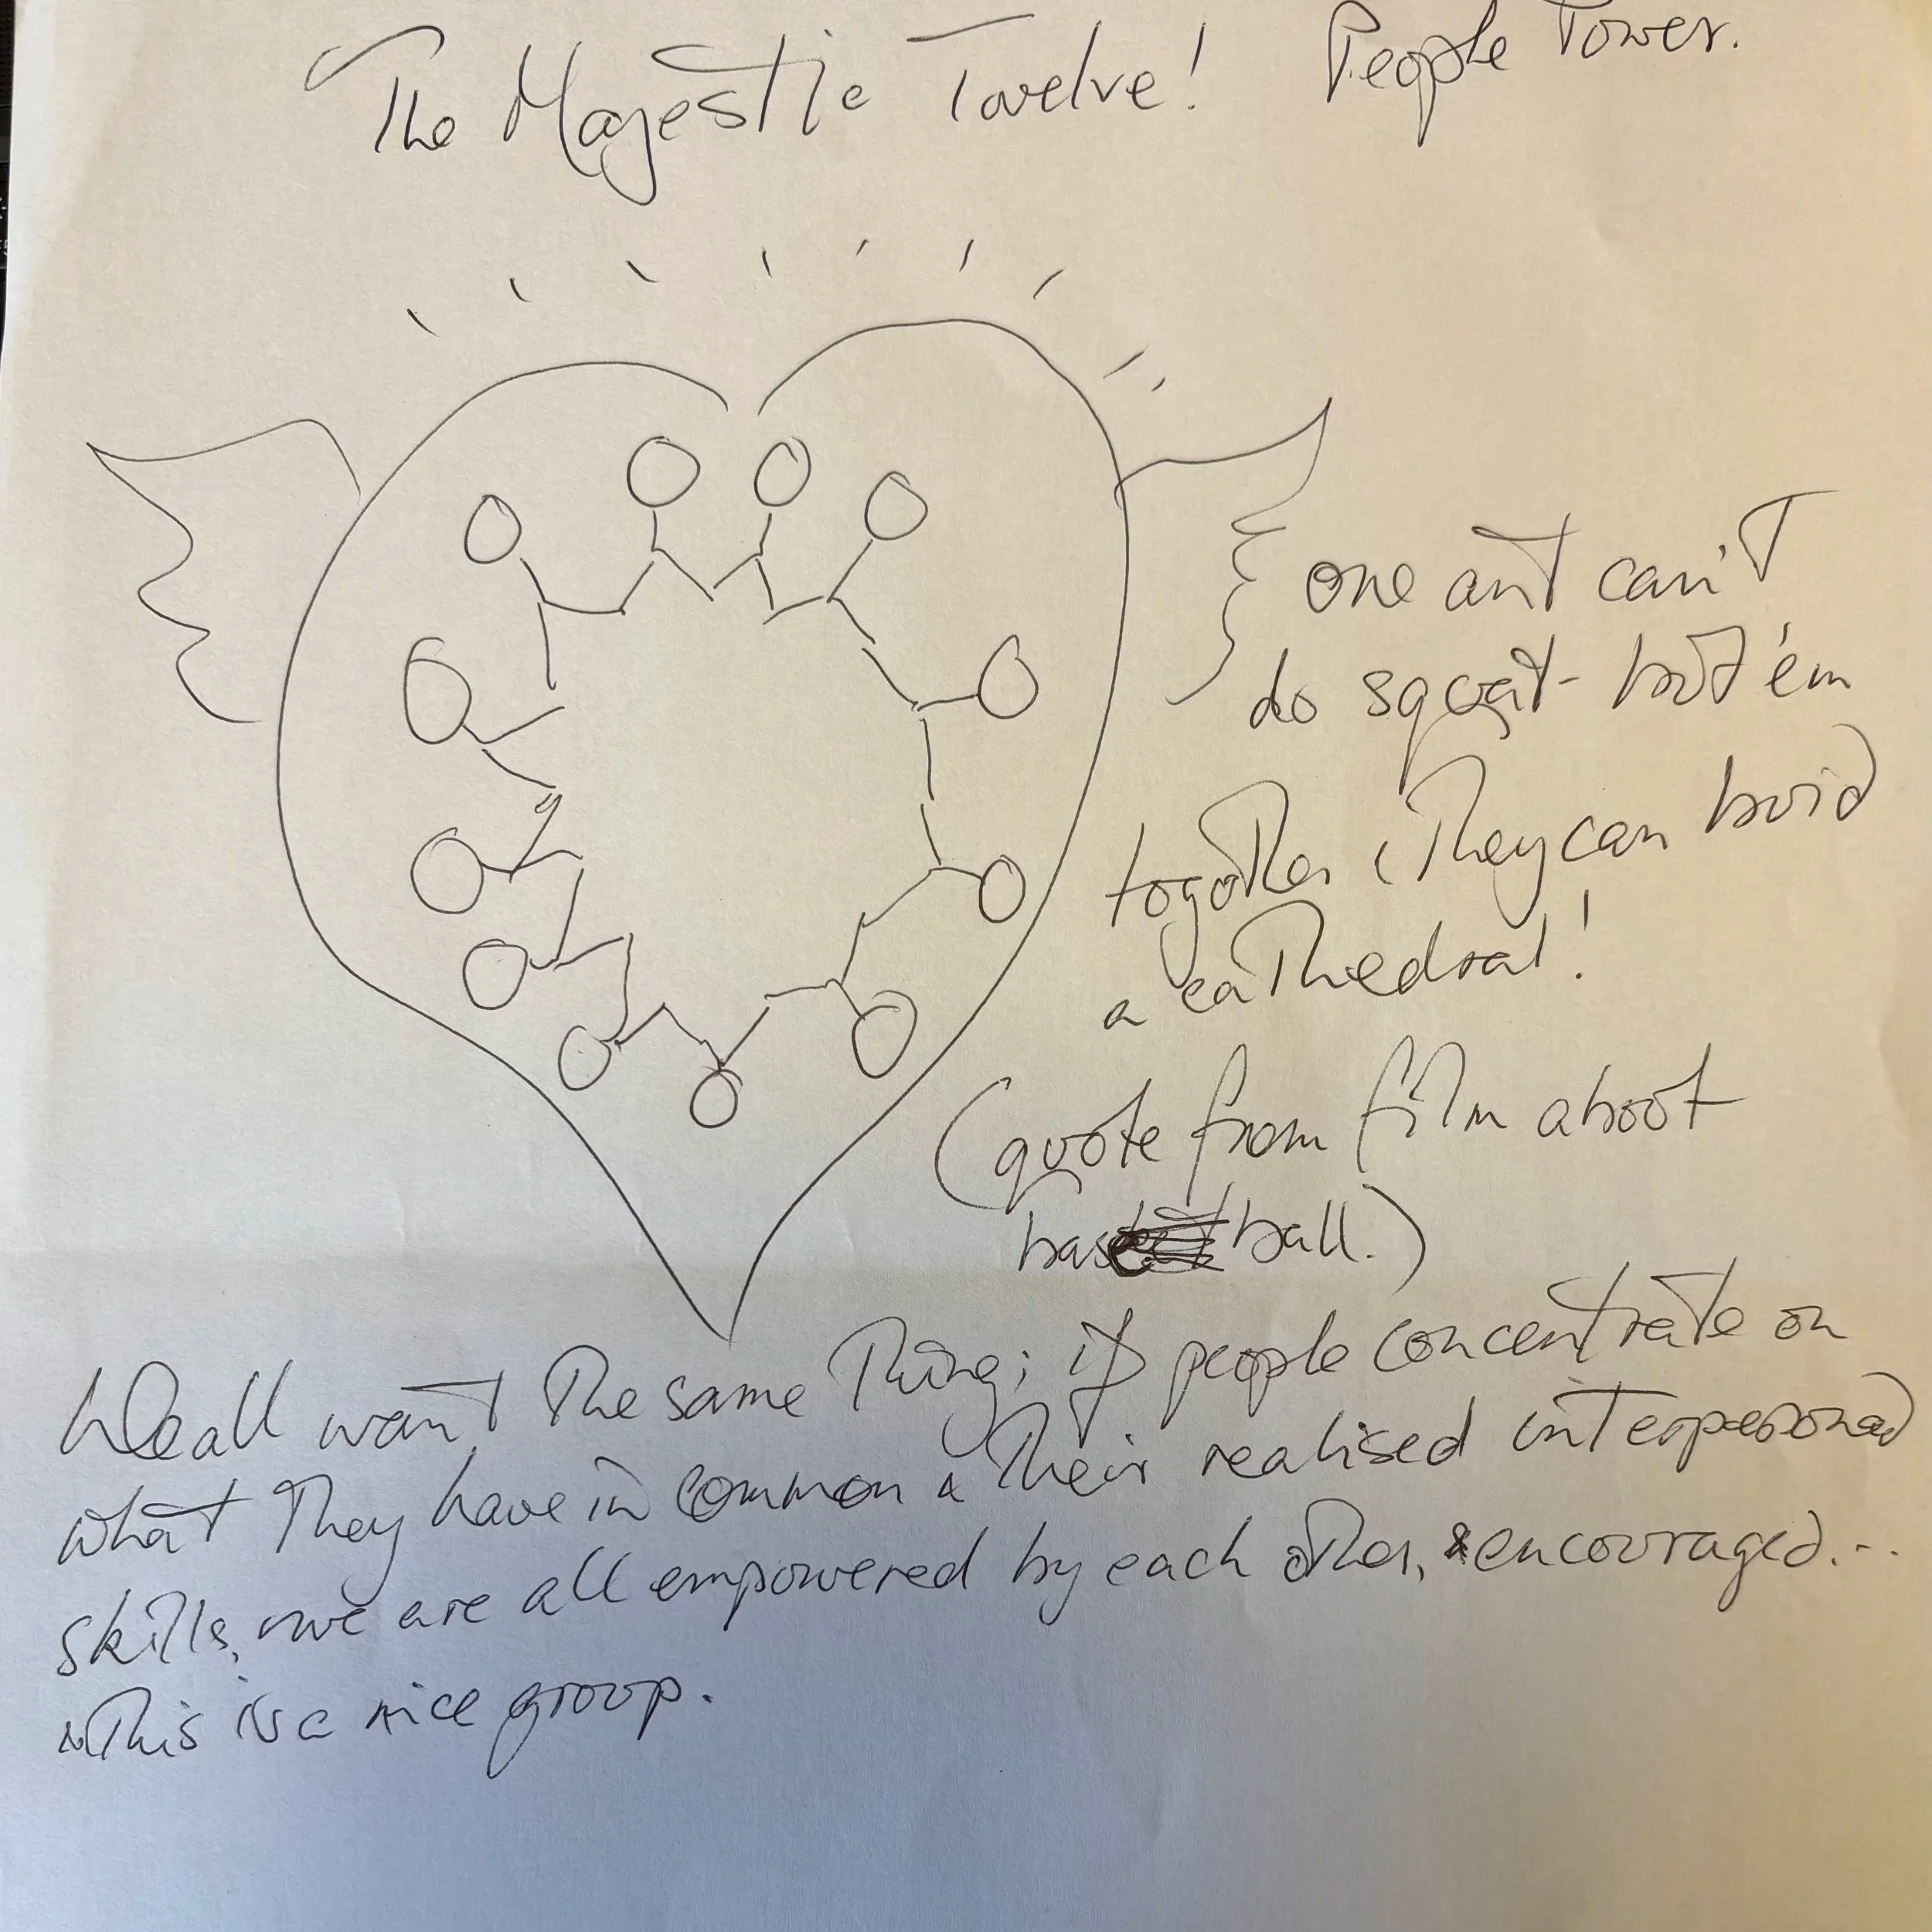 The Majestic Twelve! People Power.
one ant can't
do squat - but 'em
together, They can build
a cathedral!
(quote from film about
ball.)
We all want The same Thing; if people concentrate on
what They have in common & Their realised interpersonal
skills, we are all empowered by each other, & encouraged...
This is a nice group.